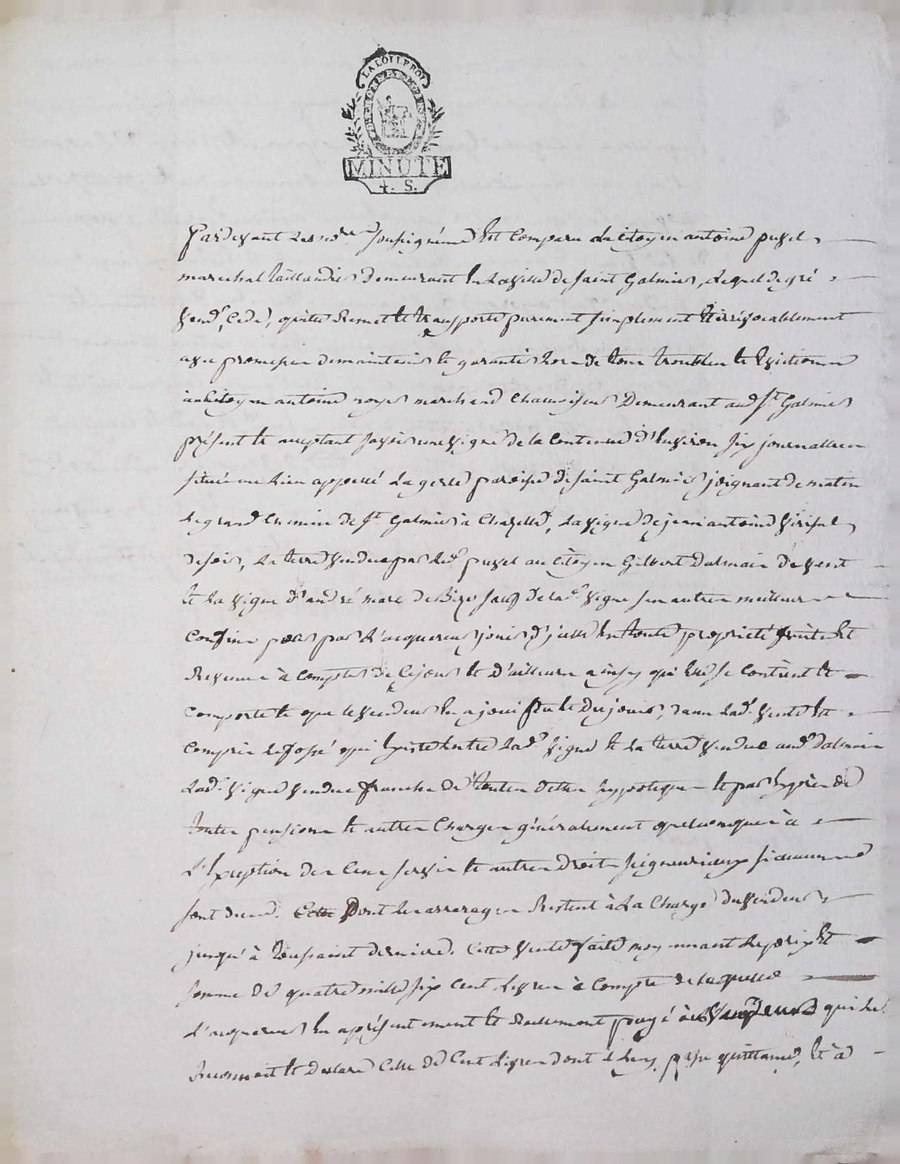 LA LOI LE ROI
MINUTE
4. S.
Pardevant les no.res soussignés est comparu le citoyen antoine puzel
marechal taillandier demeurant en la ville de saint Galmier, lequel de gré
vend, cede, quitte remet et transporte purement simplement et irrevocablement
avec promesse de maintenir et garantir hors de tous troubles et evictions
au citoyen antoine royer marchand chamoiseur demeurant aud. St Galmier
présent et acceptant savoir une vigne de la contenue d'environ six journalles
située au lieu appellé La gerle paroisse de saint Galmier joignant de matin
le grand chemin de St Galmier à Chazelle, la vigne de jean antoine
de soir, la terre vendue par led. puzel au citoyen Gilbert Dalmais de vent
et la vigne d'andré marc de bize sauf de lad. vigne ses autres meilleurs
confins pour par l'acquereur jouir d'icelle en toute propriété fruits et
revenus à compter de ce jour et d'ailleurs ainsy qu'elle se contient et
comporte et que le vendeur en a joui pu et du jouir, dans lad. vente est
compris le fossé qui existe entre lad. vigne et la terre vendue aud. Dalmais
lad. vigne vendue franche de toutes dettes hypoteques et par exprès de
toutes pensions et autres charges généralement quelconques à
l'exeption des cens servis et autres droits seigneuriaux si aucuns
sont dus. dont les arrerages restent à la charge du vendeur
jusqu'à toussaint derniere. Cette vente faite moyennant le prix et
somme de quatre mille six cent livres à compte de laquelle
l'acquereur en a présentement et reellement payé au vendeur qui le
reconnoit et declare celle de cent livres dont il passe quittance, et à